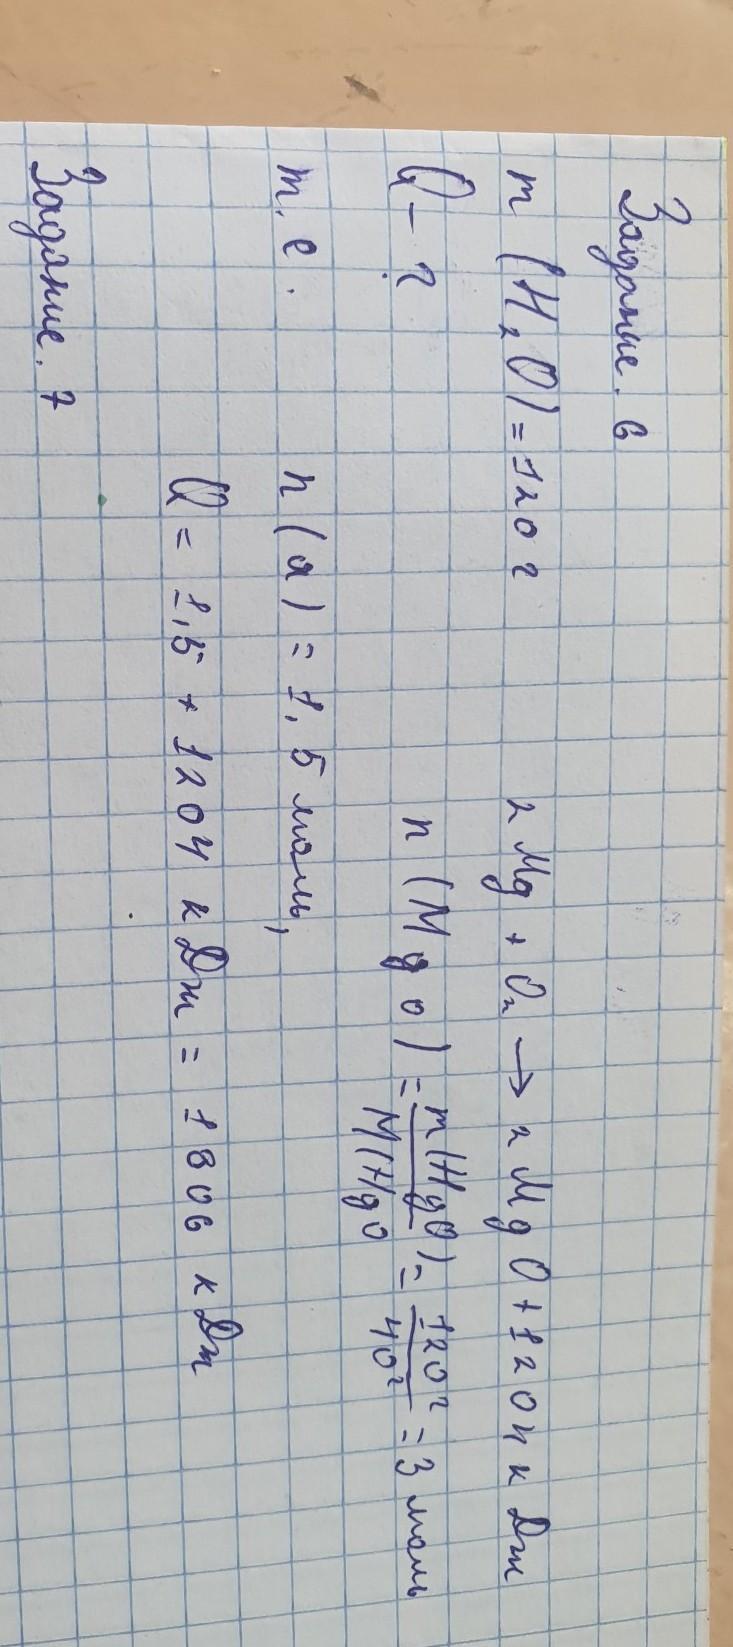 Задание. 6
m (H₂O) = 120 г 2 Mg + O₂ → 2 MgO + 1204 кДж
Q - ? n (MgO) = m(HgO) / M(HgO = 120 г / 40 г = 3 моль
т. е. n(Q) = 1,5 моль,
Q = 1,5 * 1204 кДж = 1806 кДж
Задание. 7